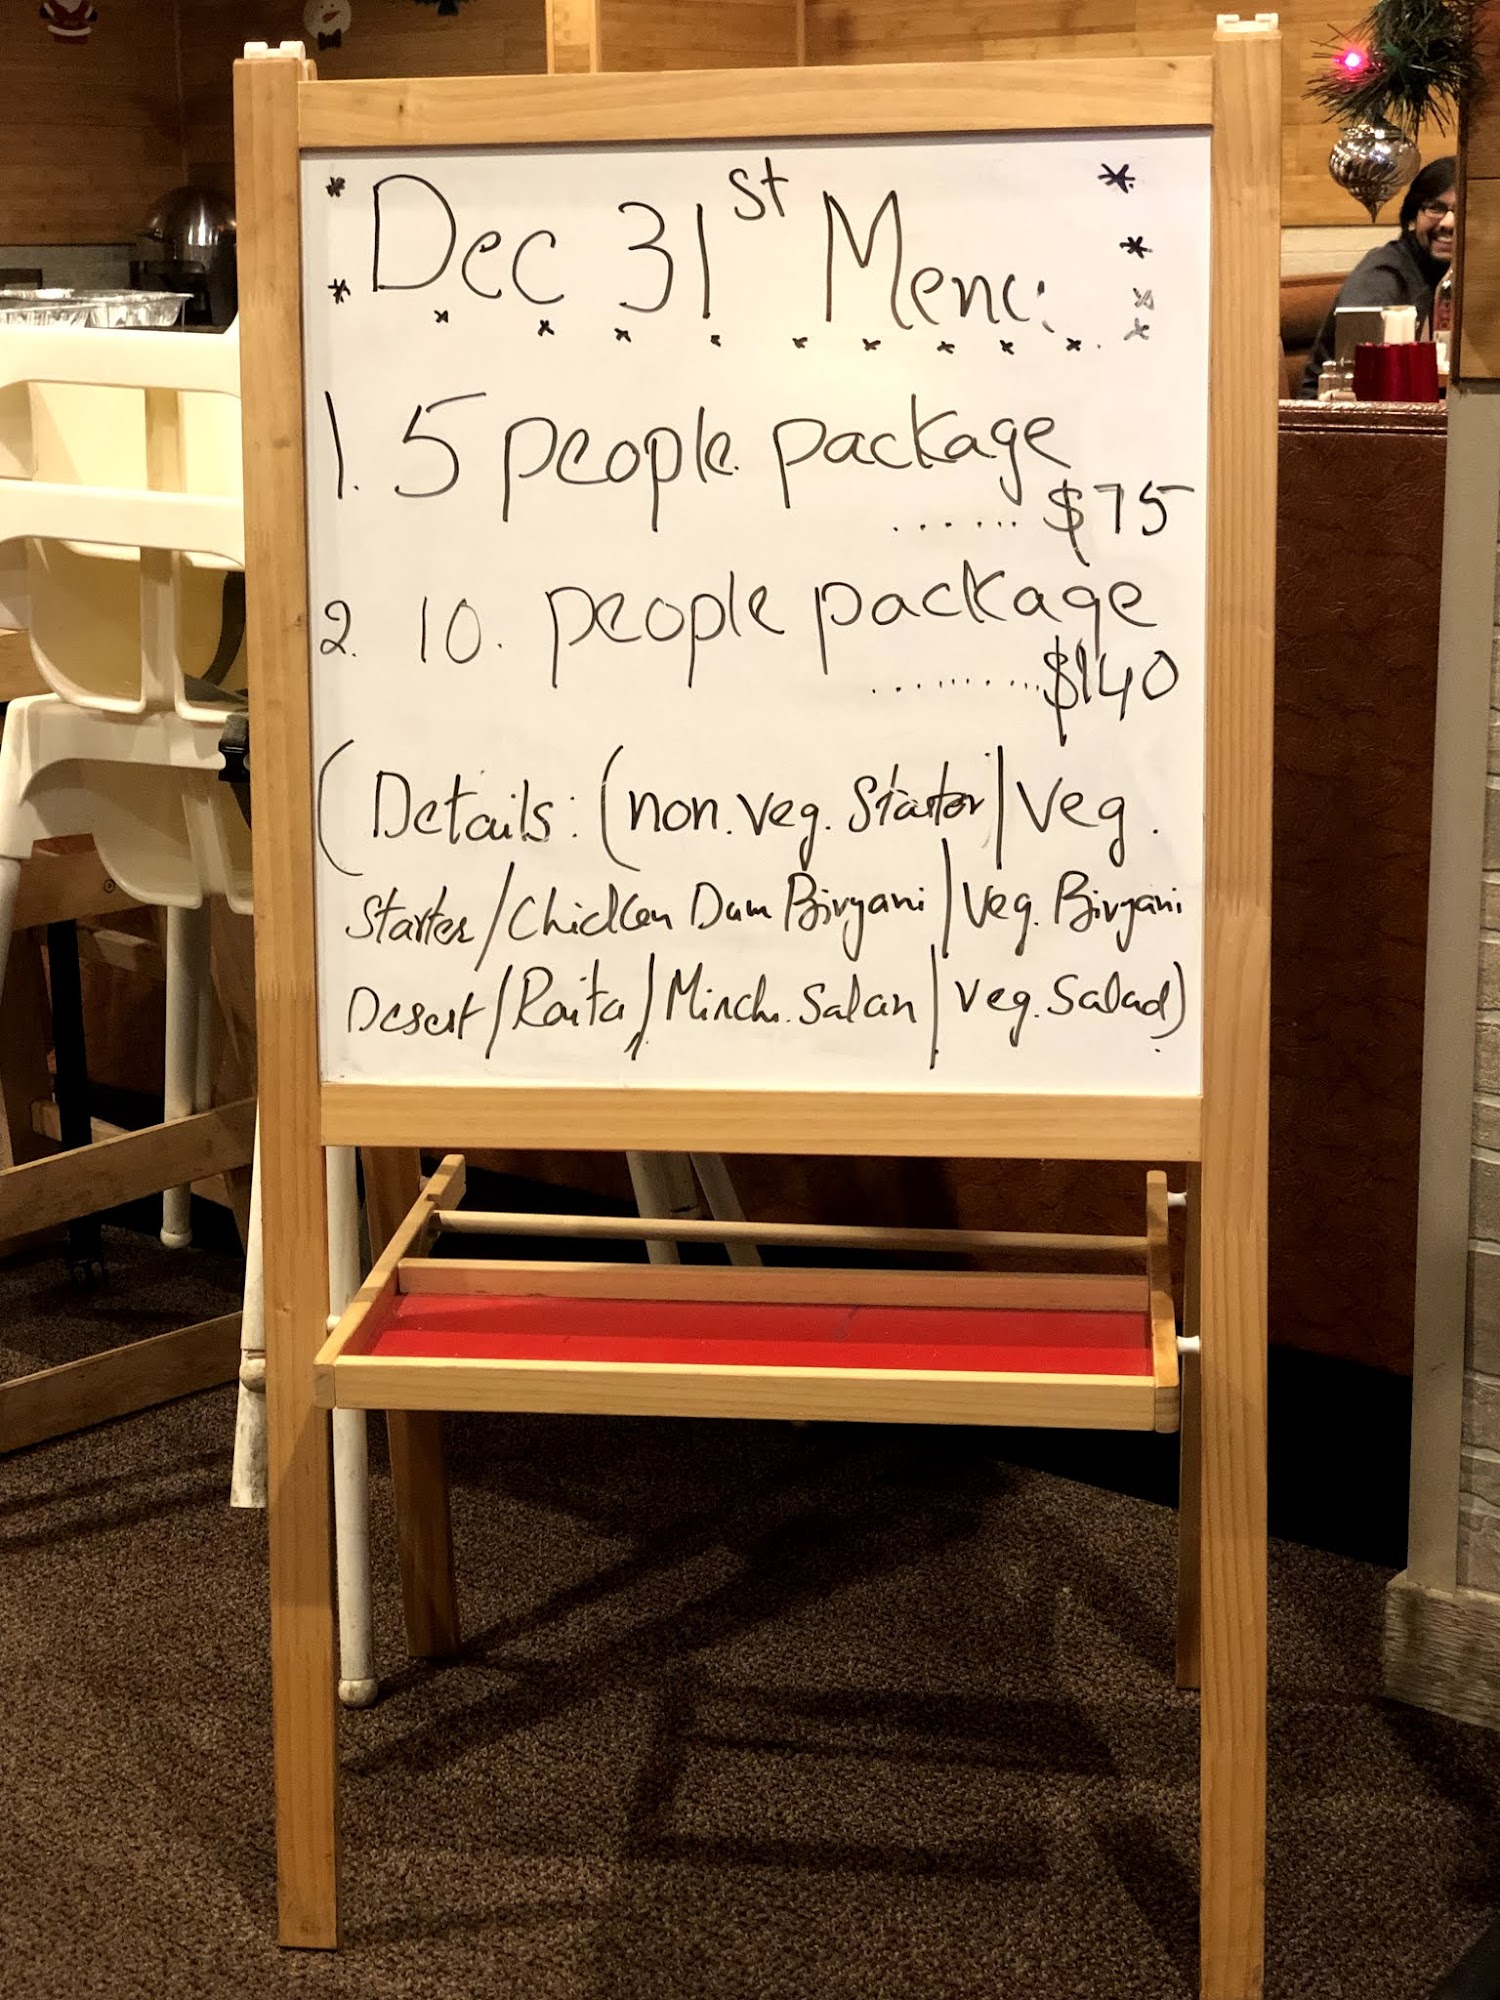 Dec 31st Menu:
1. 5 people package
...... $75
2. 10. people package
......... $140
(Details: (non.veg. Starter/Veg.
Starter/Chicken Dum Biryani/Veg. Biryani
Desert/Raita/Mirchi. Salan/Veg. Salad)